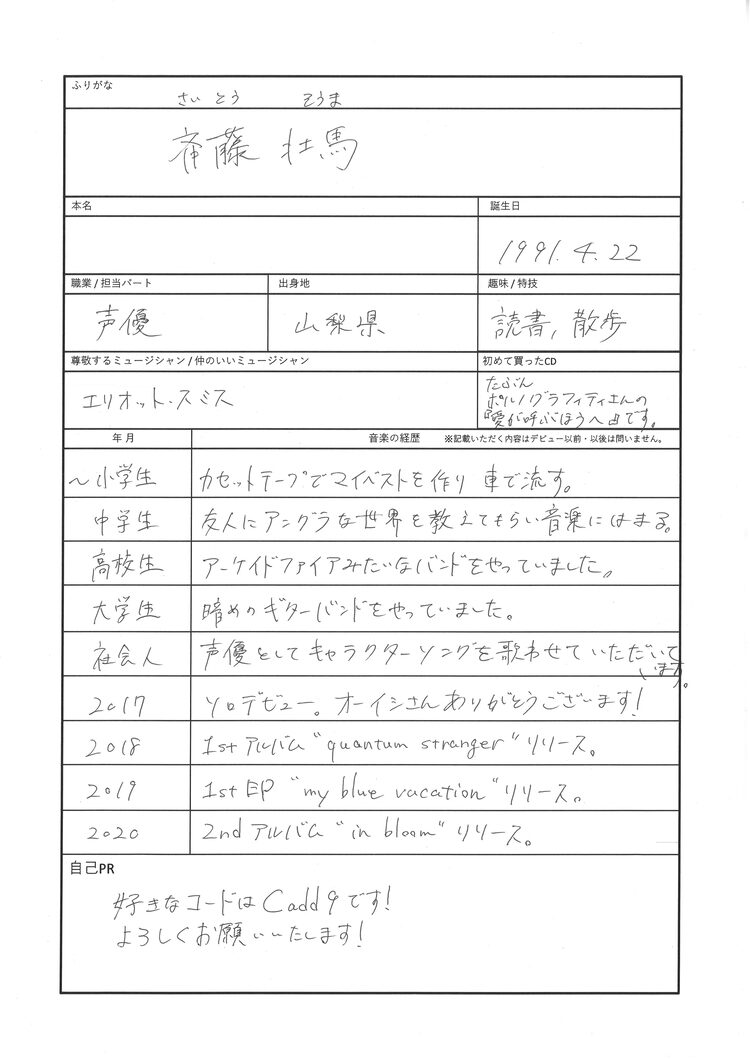 ふりがな
さいとう そうま
斉藤 壮馬
本名
誕生日
1991. 4. 22
職業 / 担当パート
出身地
趣味 / 特技
声優
山梨県
読書, 散歩
尊敬するミュージシャン / 仲のいいミュージシャン
初めて買ったCD
エリオット・スミス
たぶん
ポルノグラフィティさんの
『愛が呼ぶほうへ』です。
年 月
音楽の経歴 ※記載いただく内容はデビュー以前・以後は問いません。
～小学生 カセットテープでマイベストを作り 車で流す。
中学生 友人にアングラな世界を教えてもらい音楽にはまる。
高校生 アーケイドファイアみたいなバンドをやっていました。
大学生 暗めのギターバンドをやっていました。
社会人 声優としてキャラクターソングを歌わせていただいて
います。
2017 ソロデビュー。オーイシさんありがとうございます!
2018 1stアルバム "quantum stranger" リリース。
2019 1st EP "my blue vacation" リリース。
2020 2ndアルバム "in bloom" リリース。
自己PR
好きなコードはCadd9です!
よろしくお願いいたします!